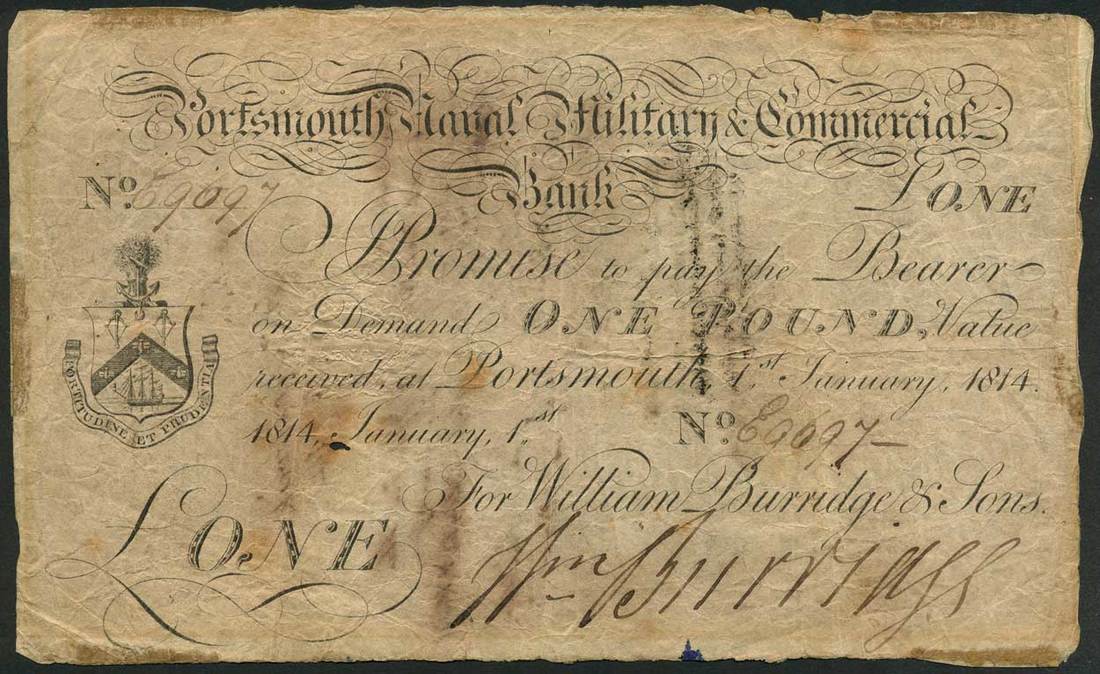 Portsmouth Naval Military & Commercial
Bank
No. E9097
£ ONE
I Promise to pay the Bearer
on Demand ONE POUND, Value
received, at Portsmouth, 1st January, 1814.
1814, January, 1st
No. E9097
FORTITUDINE ET PRUDENTIA
For William Burridge & Sons.
£ ONE
Wm Burridge